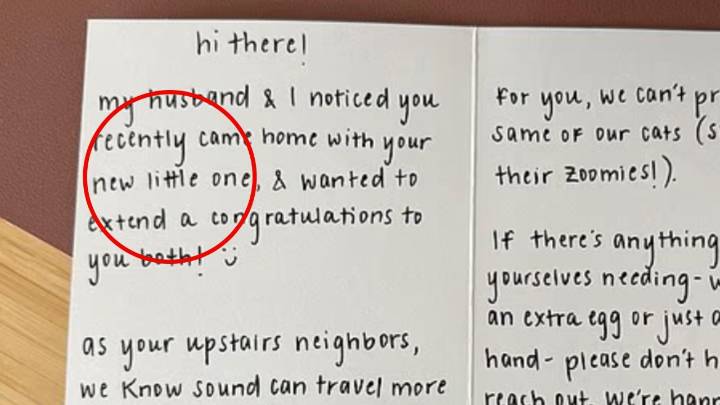 hi there!
my husband & I noticed you
recently came home with your
new little one, & wanted to
extend a congratulations to
you both! :)
as your upstairs neighbors,
we know sound can travel more
for you, we can't
same of our cats
their zoomies!).
If there's anything
yourselves needing-
an extra egg or just
hand- please don't
reach out. We're